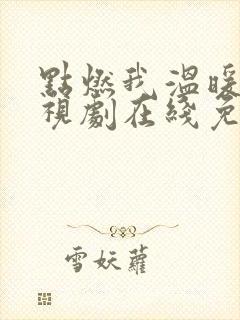 點燃我 溫暖
視劇在綫免
雪妖蘿